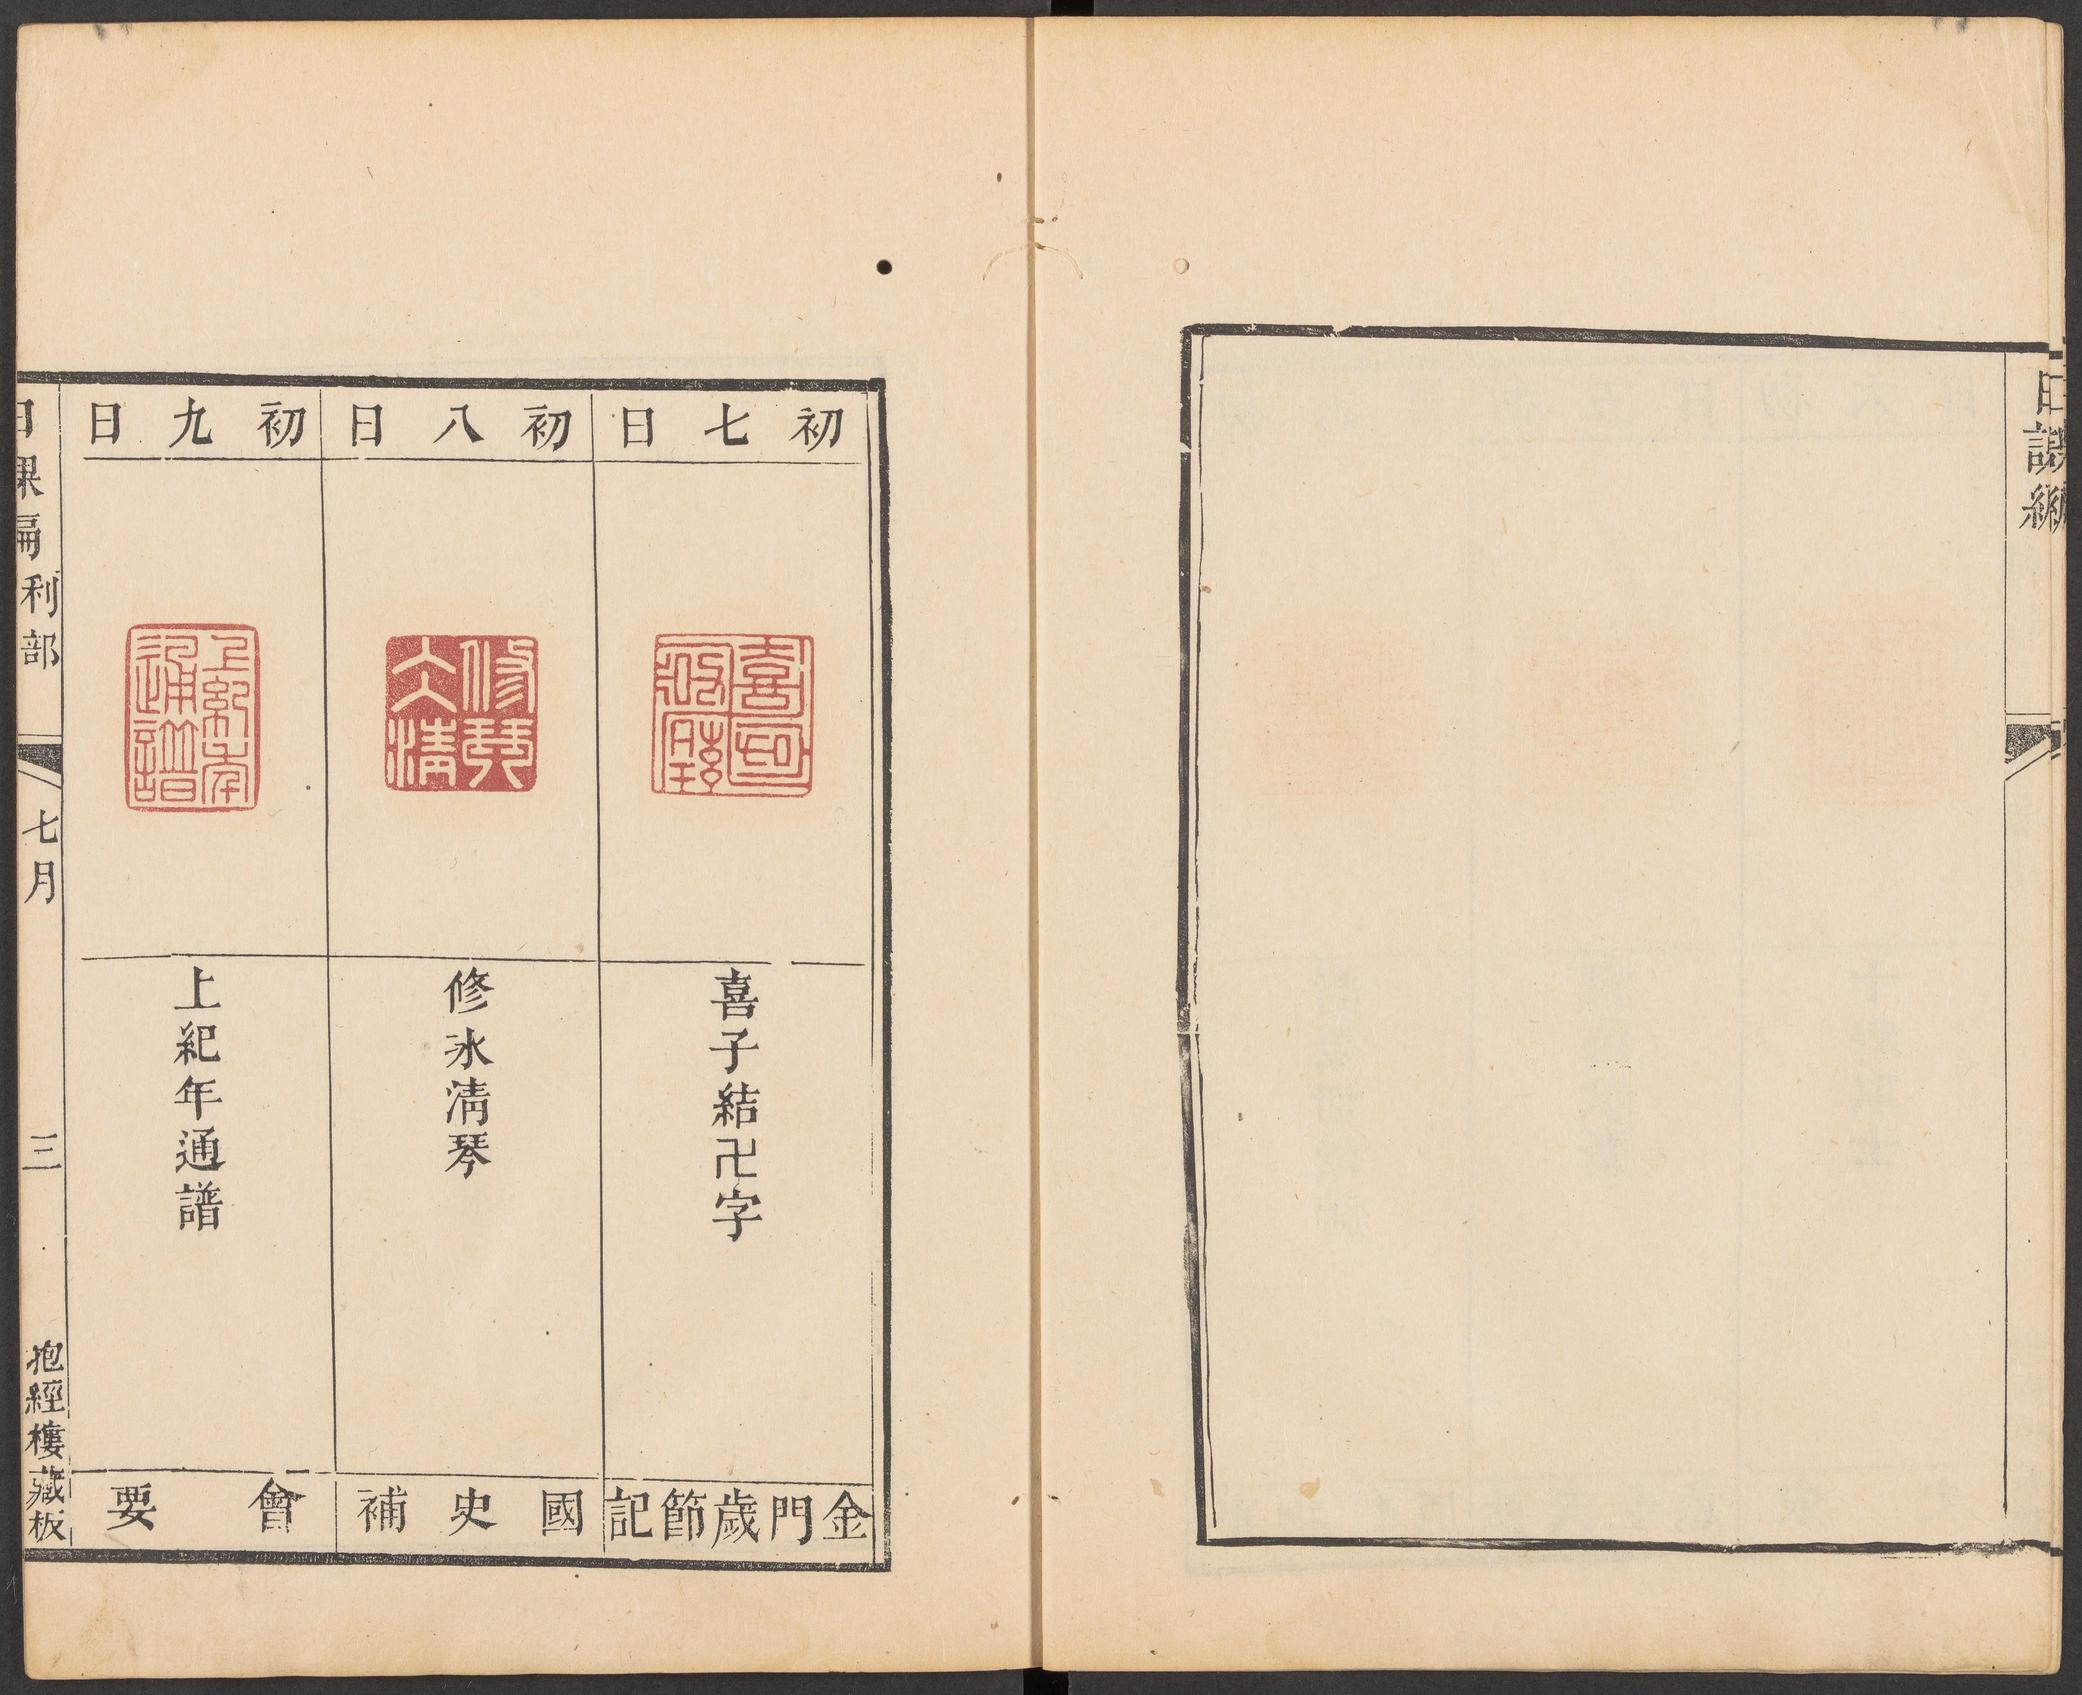 日課編
初七日
喜子結卍字
金門歲節記
初八日
修氷清琴
國史補
初九日
上紀年通譜
會要
日課編利部
七月
三
抱經樓藏板